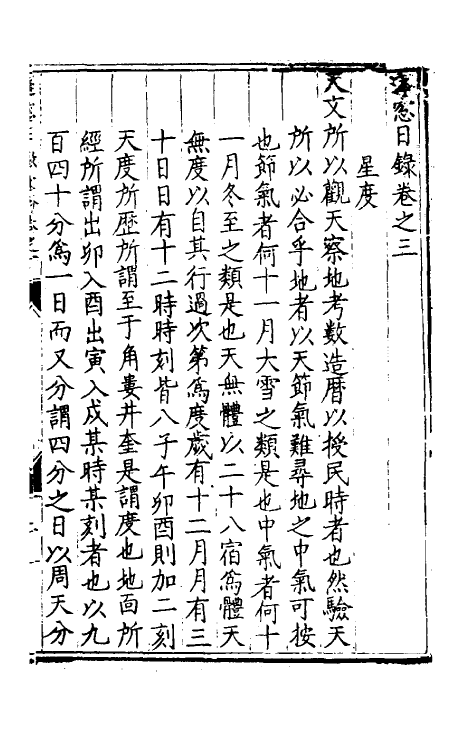 蓬窓日錄卷之三
星度
天文所以觀天察地考數造曆以授民時者也然驗天
所以必合乎地者以天節氣難尋地之中氣可按
也節氣者何十一月大雪之類是也中氣者何十
一月冬至之類是也天無體以二十八宿爲體天
無度以自其行過次第爲度歲有十二月月有三
十日日有十二時時刻皆八子午卯酉則加二刻
天度所歷所謂至于角婁井奎是謂度也地面所
經所謂出卯入酉出寅入戍某時某刻者也以九
百四十分爲一日而又分謂四分之日以周天分